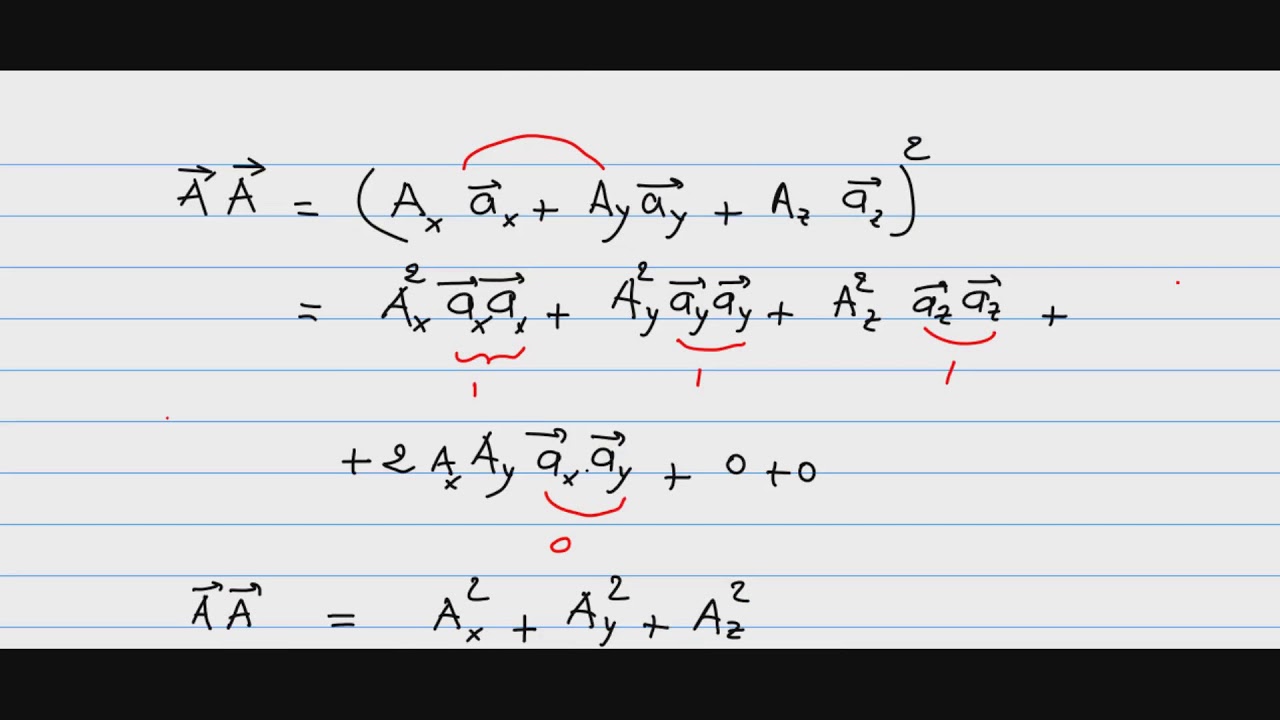 A⃗ A⃗ = (Aₓ a⃗ₓ + A_y a⃗_y + A_z a⃗_z)²
= Aₓ² a⃗ₓ a⃗ₓ + A_y² a⃗_y a⃗_y + A_z² a⃗_z a⃗_z +
1 1 1
+ 2 Aₓ A_y a⃗ₓ . a⃗_y + 0 + 0
0
A⃗ A⃗ = Aₓ² + A_y² + A_z²